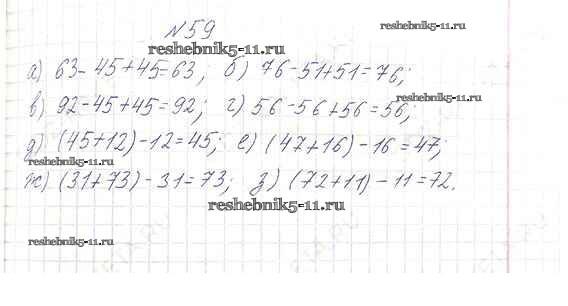 №59
reshebnik5-11.ru
reshebnik5-11.ru
а) 63-45+45=63; б) 76-51+51=76;
reshebnik5-11.ru
в) 92-45+45=92; г) 56-56+56=56;
д) (45+12)-12=45; е) (47+16)-16=47;
reshebnik5-11.ru
ж) (31+73)-31=73; з) (72+11)-11=72.
reshebnik5-11.ru
reshebnik5-11.ru